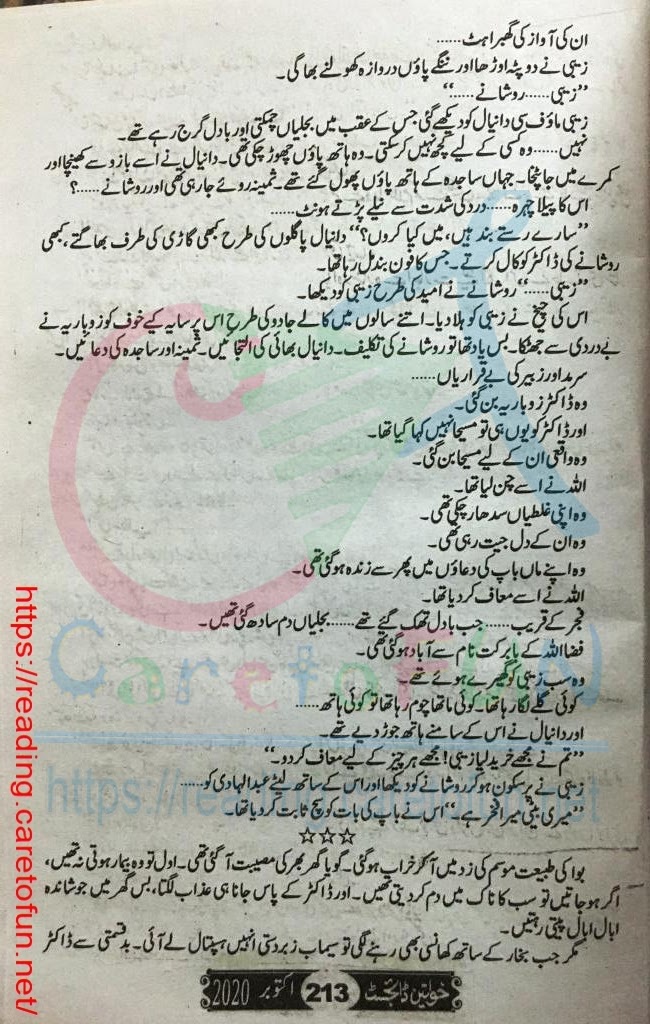 ان کی آواز کی گھبراہٹ......
زیبی نے دوپٹہ اوڑھا اور ننگے پاؤں دروازہ کھولنے بھاگی۔
”زیبی......روشانے......“
زیبی ماؤف سی دانیال کو دیکھے گئی جس کے عقب میں بجلیاں چمکتی اور بادل گرج رہے تھے۔
نہیں......وہ کسی کے لیے کچھ نہیں کر سکتی۔ وہ ہاتھ پاؤں چھوڑ چکی تھی۔ دانیال نے اسے بازو سے کھینچا اور
کمرے میں جا پٹخا۔ جہاں ساجدہ کے ہاتھ پاؤں پھول گئے تھے۔ ثمینہ روئے جا رہی تھی اور روشانے......؟
اس کا پیلا چہرہ......درد کی شدت سے نیلے پڑتے ہونٹ......
”سارے رستے بند ہیں، میں کیا کروں؟“ دانیال پاگلوں کی طرح کبھی گاڑی کی طرف بھاگتے، کبھی
روشانے کی ڈاکٹر کو کال کرتے۔ جس کا فون بند مل رہا تھا۔
”زیبی......“ روشانے نے امید کی طرح زیبی کو دیکھا۔
اس کی چیخ نے زیبی کو ہلا دیا۔ اتنے سالوں میں کالے جادو کی طرح اس پر سایہ کیے خوف کو زوباریہ نے
بے دردی سے جھٹکا۔ بس یاد تھا تو روشانے کی تکلیف۔ دانیال بھائی کی التجائیں۔ ثمینہ اور ساجدہ کی دعائیں۔
سرمد اور زبیر کی بے قراریاں......
وہ ڈاکٹر زوباریہ بن گئی۔
اور ڈاکٹر کو یوں ہی تو مسیحا نہیں کہا گیا تھا۔
وہ واقعی ان کے لیے مسیحا بن گئی۔
اللہ نے اسے چن لیا تھا۔
وہ اپنی غلطیاں سدھار چکی تھی۔
وہ ان کے دل جیت رہی تھی۔
وہ اپنے ماں باپ کی دعاؤں میں پھر سے زندہ ہو گئی تھی۔
اللہ نے اسے معاف کر دیا تھا۔
فجر کے قریب......جب بادل تھک گئے تھے......بجلیاں دم سادھ گئی تھیں۔
فضا اللہ کے بابرکت نام سے آباد ہو گئی تھی۔
وہ سب زیبی کو گھیرے ہوئے تھے۔
کوئی گلے لگا رہا تھا۔ کوئی ماتھا چوم رہا تھا تو کوئی ہاتھ......
اور دانیال نے اس کے سامنے ہاتھ جوڑ دیے تھے۔
”تم نے مجھے خرید لیا زیبی! مجھے ہر چیز کے لیے معاف کر دو۔“
زیبی نے پرسکون ہو کر روشانے کو دیکھا اور اس کے ساتھ لیٹے عبدالہادی کو......
”میری بیٹی میرا فخر ہے۔“ اس نے باپ کی بات کو سچ ثابت کر دیا تھا۔
☆☆☆
بوا کی طبیعت موسم کی زد میں آ کر خراب ہو گئی۔ گویا گھر بھر کی مصیبت آ گئی تھی۔ اول تو وہ بیمار ہوتی نہ تھیں،
اگر ہو جاتیں تو سب کا ناک میں دم کر دیتی تھیں۔ اور ڈاکٹر کے پاس جانا ہی عذاب لگتا، بس گھر میں جوشاندہ
ابال ابال پیتی رہتیں۔
مگر جب بخار کے ساتھ کھانسی بھی رہنے لگی تو سیماب زبردستی انہیں ہسپتال لے آئی۔ بدقسمتی سے ڈاکٹر
خواتین ڈائجسٹ 213 اکتوبر 2020
https://reading.caretofun.net/
CaretoFUN
https://reading.caretofun.net